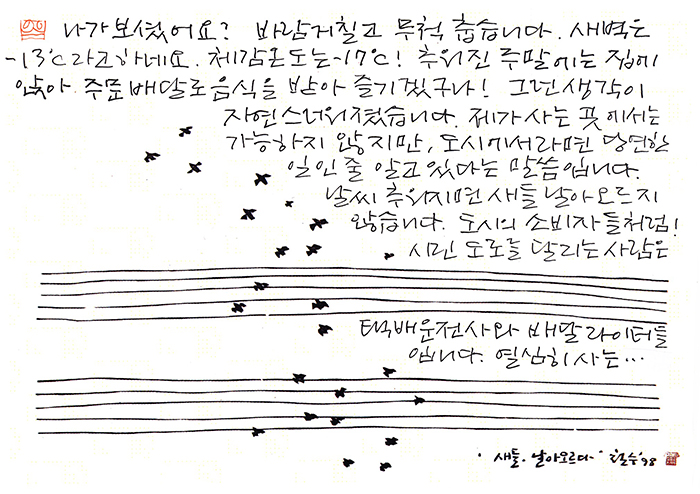 나가보셨어요? 바람거칠고 무척 춥습니다. 새벽은
-13°C라고하네요. 체감온도는-17°C! 추워진 주말에는 집에
앉아 주문배달로음식을 받아 즐기겠구나! 그런생각이
자연스러워졌습니다. 제가사는 곳에서는
가능하지 않지만, 도시에서라면 당연한
일인 줄 알고 있다는 말씀입니다.
날씨 추워지면 새들 날아오르지
않습니다. 도시의 소비자들처럼!
시린 도로를 달리는 사람은
택배운전사와 배달 라이더들
입니다. 열심히 사는…
· 새들·날아오르다· 철수'98